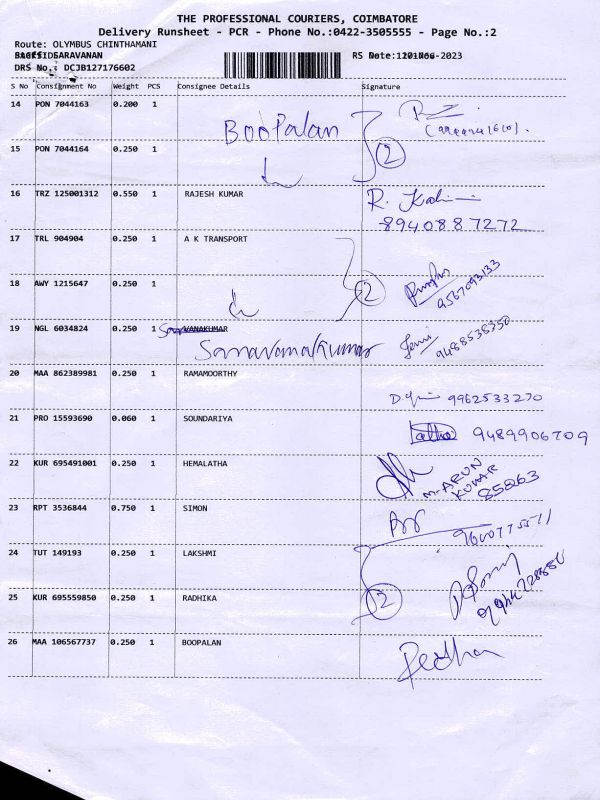 THE PROFESSIONAL COURIERS, COIMBATORE
Delivery Runsheet - PCR - Phone No.:0422-3505555 - Page No.:2
Route: OLYMBUS CHINTHAMANI
SARAVANAN
DRS No.: DCJB127176602
RS Date: -2023
S No Consignment No Weight PCS Consignee Details Signature
14 PON 7044163 0.200 1
Boopalan
15 PON 7044164 0.250 1
2
16 TRZ 125001312 0.550 1 RAJESH KUMAR
8940887272
17 TRL 904904 0.250 1 A K TRANSPORT
18 AWY 1215647 0.250 1
2
9567093133
19 NGL 6034824 0.250 1
Saravanakumar
9488538350
20 MAA 862389981 0.250 1 RAMAMOORTHY
9962533270
21 PRO 15593690 0.060 1 SOUNDARIYA
9489906709
22 KUR 695491001 0.250 1 HEMALATHA
M. ARUN
KUMAR
85263
23 RPT 3536844 0.750 1 SIMON
24 TUT 149193 0.250 1 LAKSHMI
25 KUR 695559850 0.250 1 RADHIKA
2
26 MAA 106567737 0.250 1 BOOPALAN